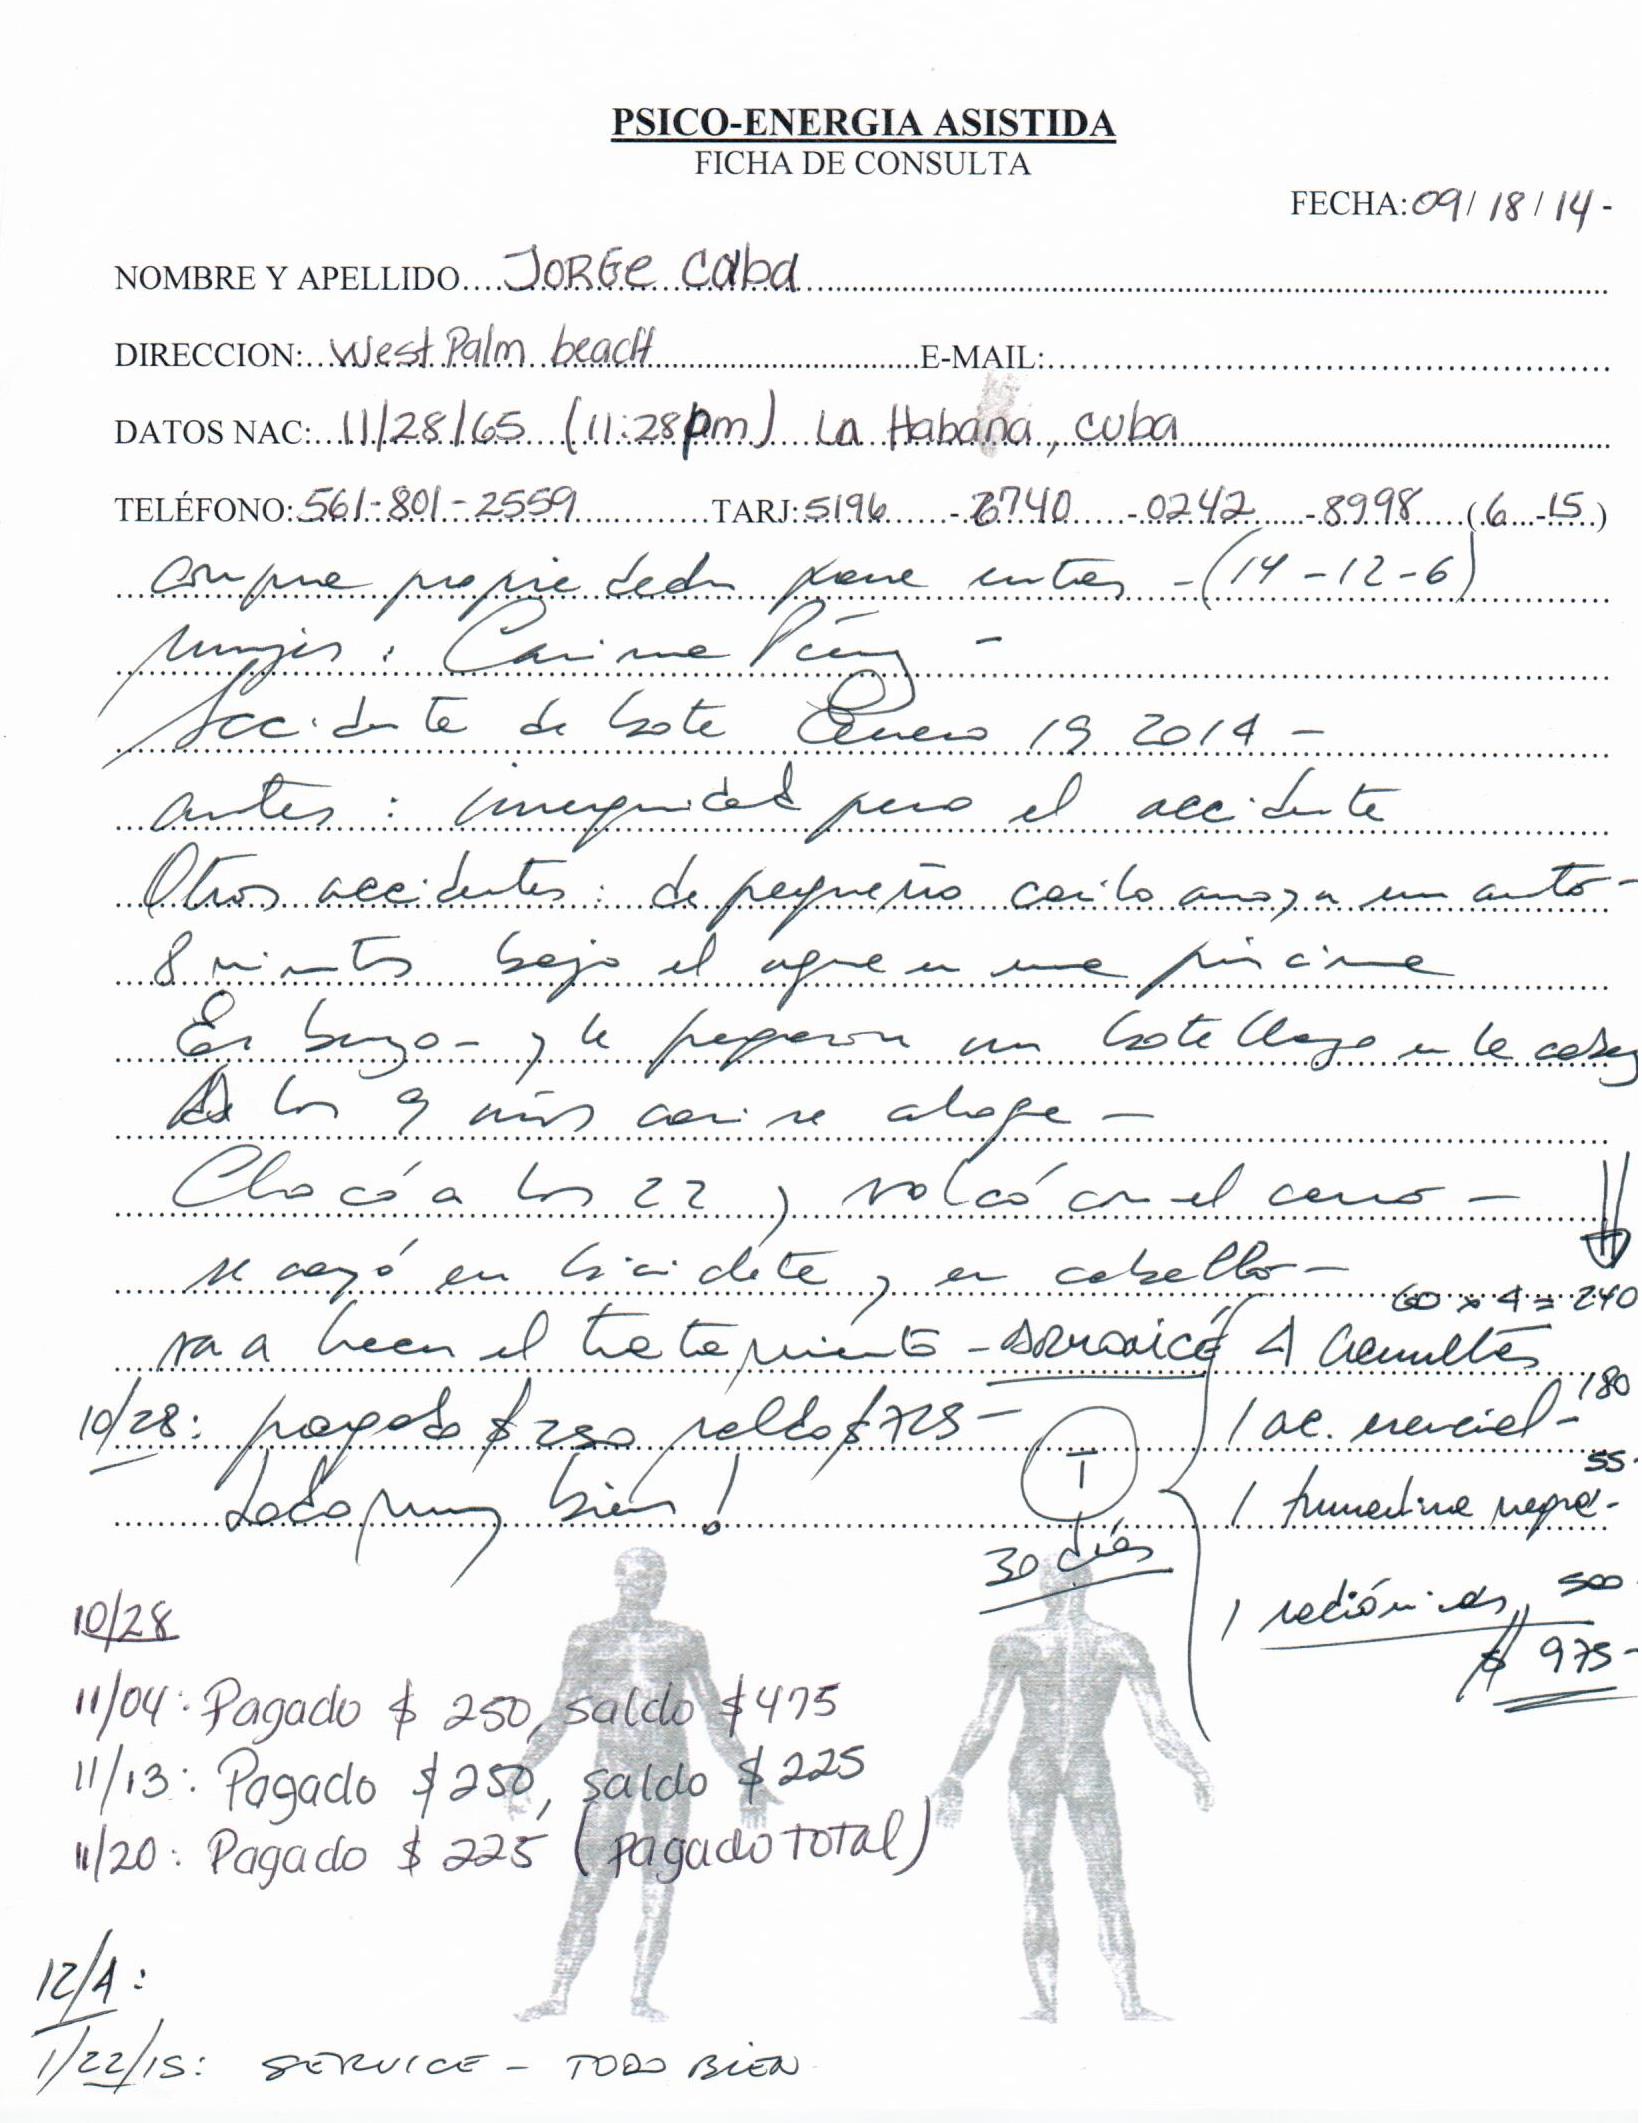 PSICO-ENERGIA ASISTIDA
FICHA DE CONSULTA
FECHA: 09/18/14-
NOMBRE Y APELLIDO.... JORGE Caba
DIRECCION: West Palm beach E-MAIL:
DATOS NAC: 11/28/65 (11:28pm) La Habana, Cuba
TELÉFONO: 561-801-2559 TARJ: 5196 - 3740 - 0242 - 8998 (6 - 15)
compra propiedades para - (14-12-6)
mujer: Carime -
Accidente de bote Enero 19 2014 -
antes: pero el accidente
Otros accidentes: de pequeño casi lo un auto -
8 minutos bajo el agua en una piscina
Es buzo - y le pegaron un botellazo en la cabeza
A los 9 años casi se ahoga -
Chocó a los 22, volcó con el carro -
se cayó en bicicleta, en caballo -
60 x 4 = 240
va a hacer el tratamiento - 4 Consultas
10/28: pagado $250 saldo $725 - 1 ac. esencial - 180
todo muy bien! T 1 turmalina negra - 55-
30 días
1 radiónicas, 500
$ 975-
10/28
11/04: Pagado $ 250, saldo $475
11/13: Pagado $250, saldo $225
11/20: Pagado $ 225 (pagado TOTAL)
12/4:
1/22/15: SERVICE - TODO BIEN